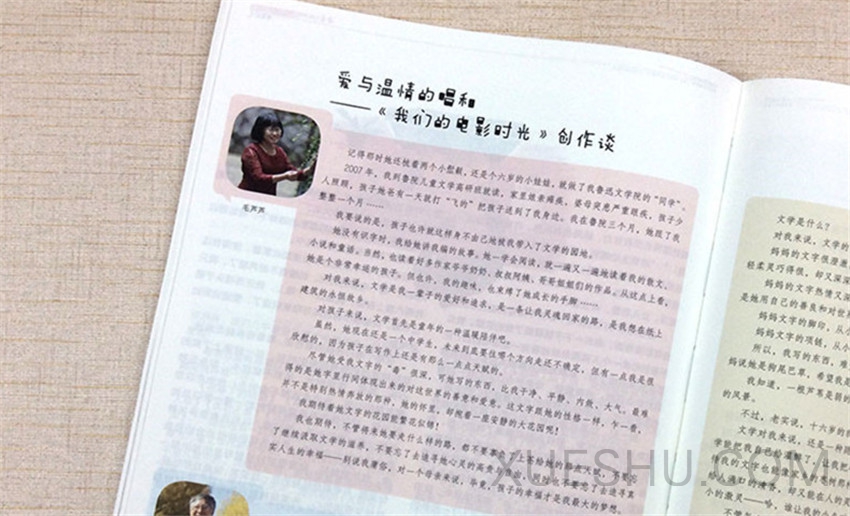 爱与温情的唱和
——《我们的电影时光》创作谈
毛芦芦
记得那时她还梳着两个小髽鬏，还是个六岁的小娃娃，就做了我鲁迅文学院的“同学”。
2007年，我到鲁院儿童文学高研班就读，家里娘亲瘫痪，婆母突患严重眼疾，孩子少
人照顾，孩子她爸有一天就打“飞的”把孩子送到了我身边。我在鲁院三个月，她跟了我
整整一个月……
我要说的是，孩子也许就这样身不由己地被我带入了文学的园地。
她没有识字时，我给她讲我编的故事。她一学会阅读，就一遍又一遍地读着我的散文、
小说和童话。当然，也读着好多作家爷爷奶奶、叔叔阿姨、哥哥姐姐们的作品。从这点上看，
她是个非常幸福的孩子。但也许，我的趣味，也束缚了她成长的手脚……
对我来说，文学是我一辈子的爱好和追求，是一条让我灵魂回家的路，是我想在纸上
建筑的永恒故乡。
对孩子来说，文学首先是童年的一种温暖陪伴吧。
虽然，她现在还是一个中学生，未来到底要往哪个方向走还不确定，但有一点我是很
欣慰的，因为孩子在写作上还是有那么一点点天赋的。
尽管她受我文字的“毒”很深，可她写的东西，比我干净、平静、内敛、大气。最难
得的是她字里行间体现出来的对这世界的善意和爱意。这文字跟她的性格一样，乍一看，
并不是特别热情奔放的那种，她的怀里，却抱着一座安静的大花园呢！
我期待着她文字的花园能繁花似锦！
我也期待，不管将来她要走什么样的路，都不要辜负上苍给她的那点天赋，不要忘
了继续汲取文学的滋养，不要忘了去追寻心灵的高贵与丰富，同时，不要忘了去追寻真
实人生的幸福——别说我庸俗，对一个母亲来说，毕竟，孩子的幸福才是我最大的梦想。
文学是什么？
对我来说，文学的
妈妈的文字很澄澈
轻柔灵巧得很，却又深深
妈妈的文字热情又深
是她用自己的善良和对世
妈妈文字的脚印，从小
妈妈文字的项链，从小
所以，我写的东西，难
妈说她是狗尾巴草，希望我是
我知道，一根芦苇是弱的
的风景。
不过，老实说，十六岁的
文学对我来说，还是一种陪
XUESHU.COM